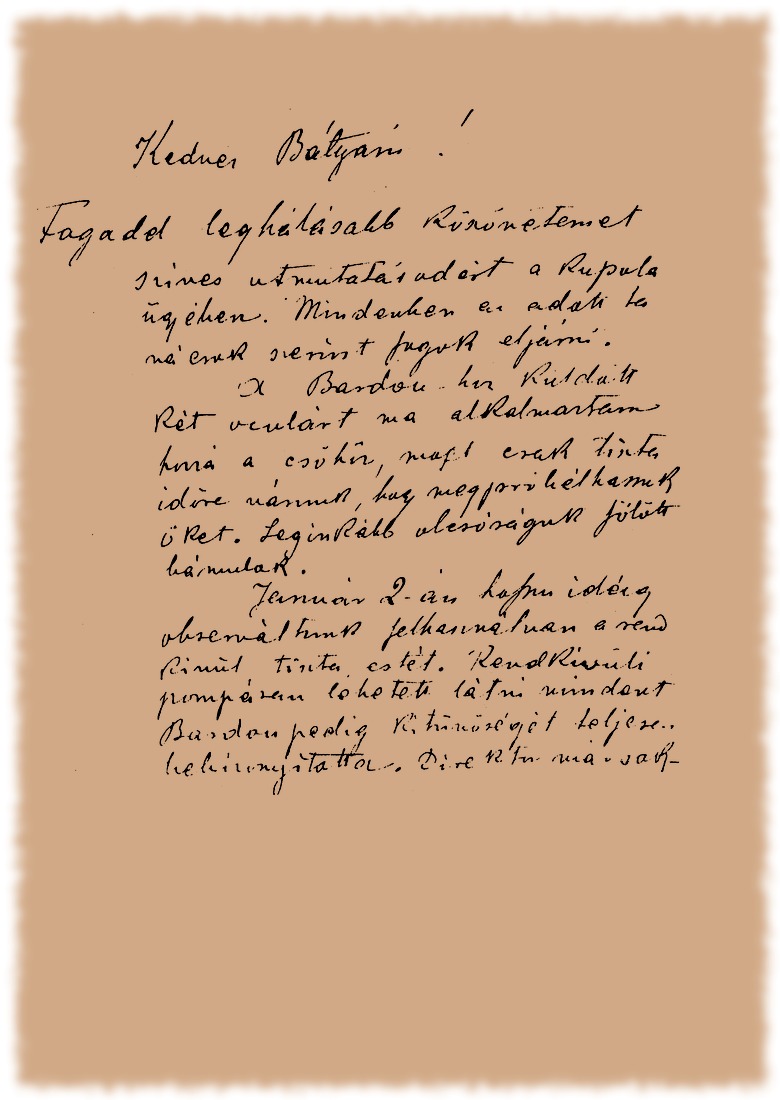 Kedves Bátyám !
Fogadd leghálásabb köszönetemet
szives utmutatásodért a kupola
ügyében. Mindenben az adott ta
nácsok szerint fogok eljárni.
A Bardou-hoz küldött
két oculárt ma alkalmaztam
hozzá a csőhöz, most csak tiszta
időre várunk, hogy megpróbálhassuk
őket. Leginkább olcsóságuk fölött
bámulok.
Január 2-án hajnu idéig
observáltunk felhasználván a rend
kívül tiszta estét. Rendkívüli
pompásan lehetett látni mindent
Bardou pedig kitünőségét teljesen
bebizonyitotta. Direktor már sok-